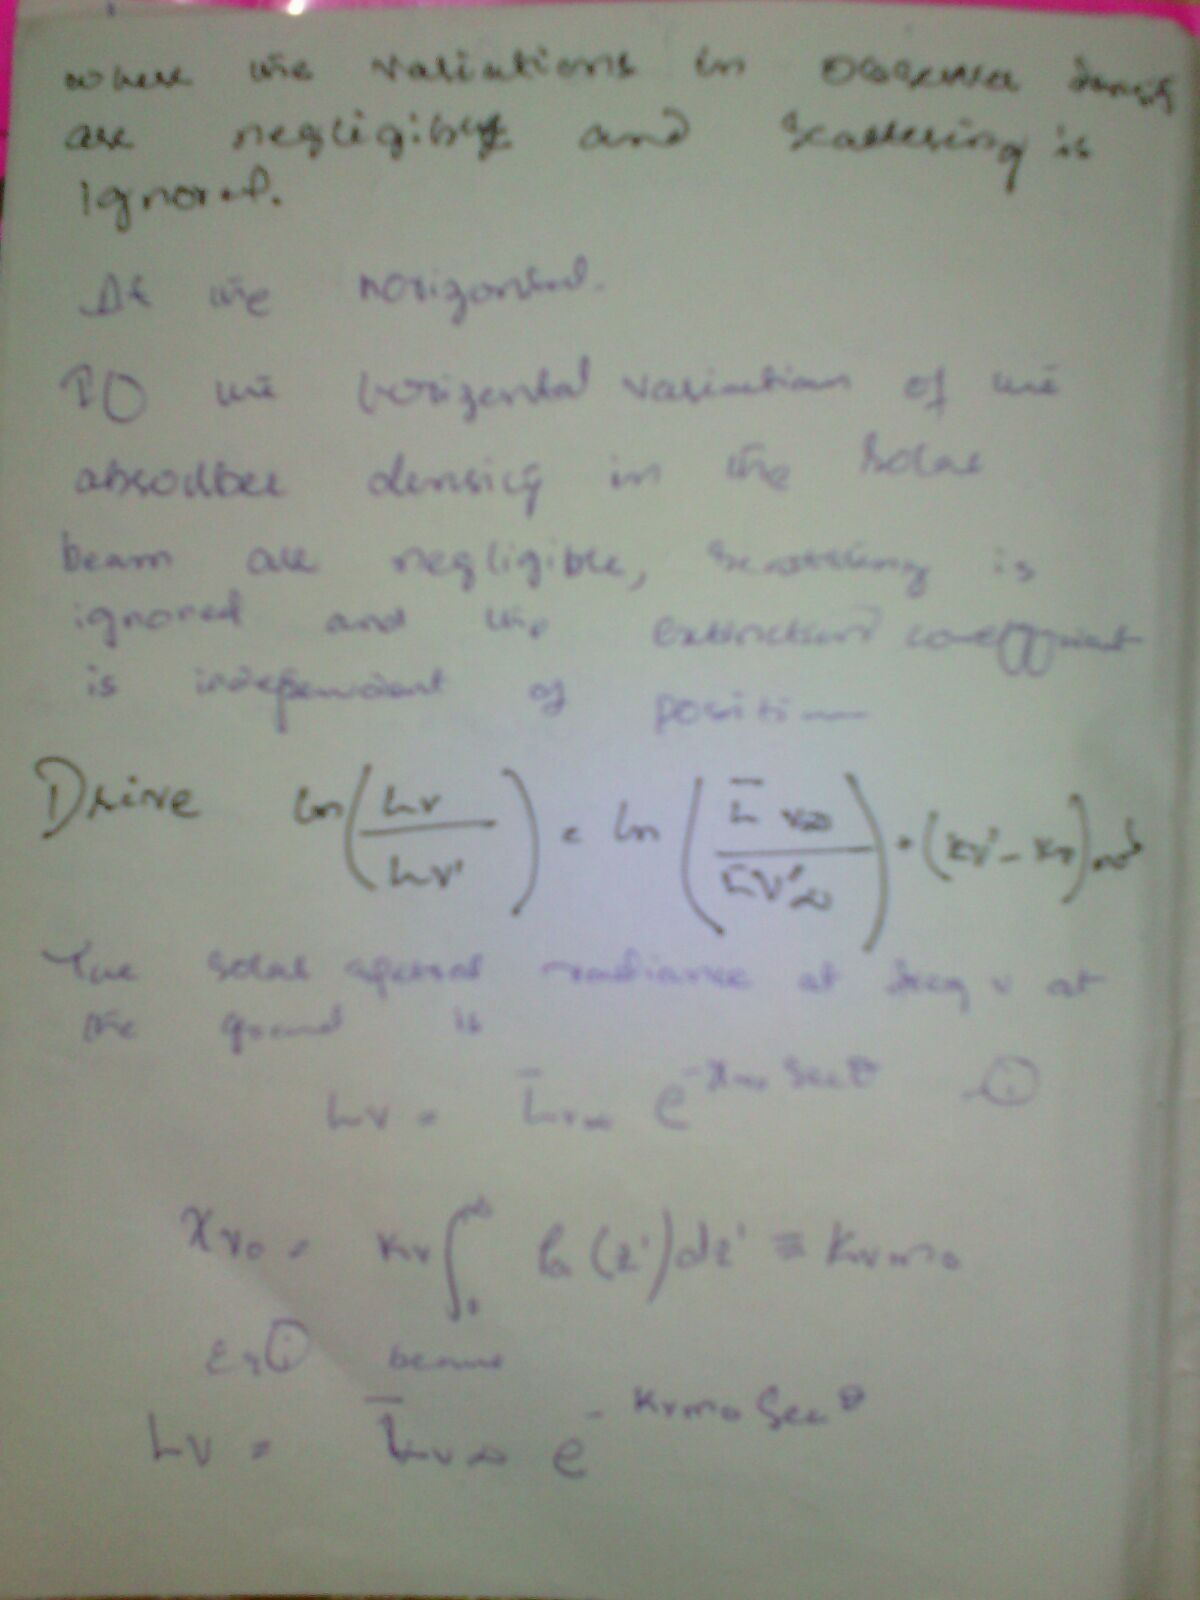 where the variations in density
are negligible and scattering is
ignored.
If the horizontal.
the horizontal variation of the
absorber density in the solar
beam are negligible, scattering is
ignored and the extinction coefficient
is independent of
Drive ln(Lν/Lν') = ln(L̄ν∞/L̄ν'∞) + (kν' - kν)
The solar spectral radiance at freq ν at
the ground is
Lν = L̄ν∞ e sec θ ①
χν0 = kν ∫₀^∞ ρa(z')dz' ≡ kνm0
Eq ①
Lν = L̄ν∞ e^- kνm0 sec θ